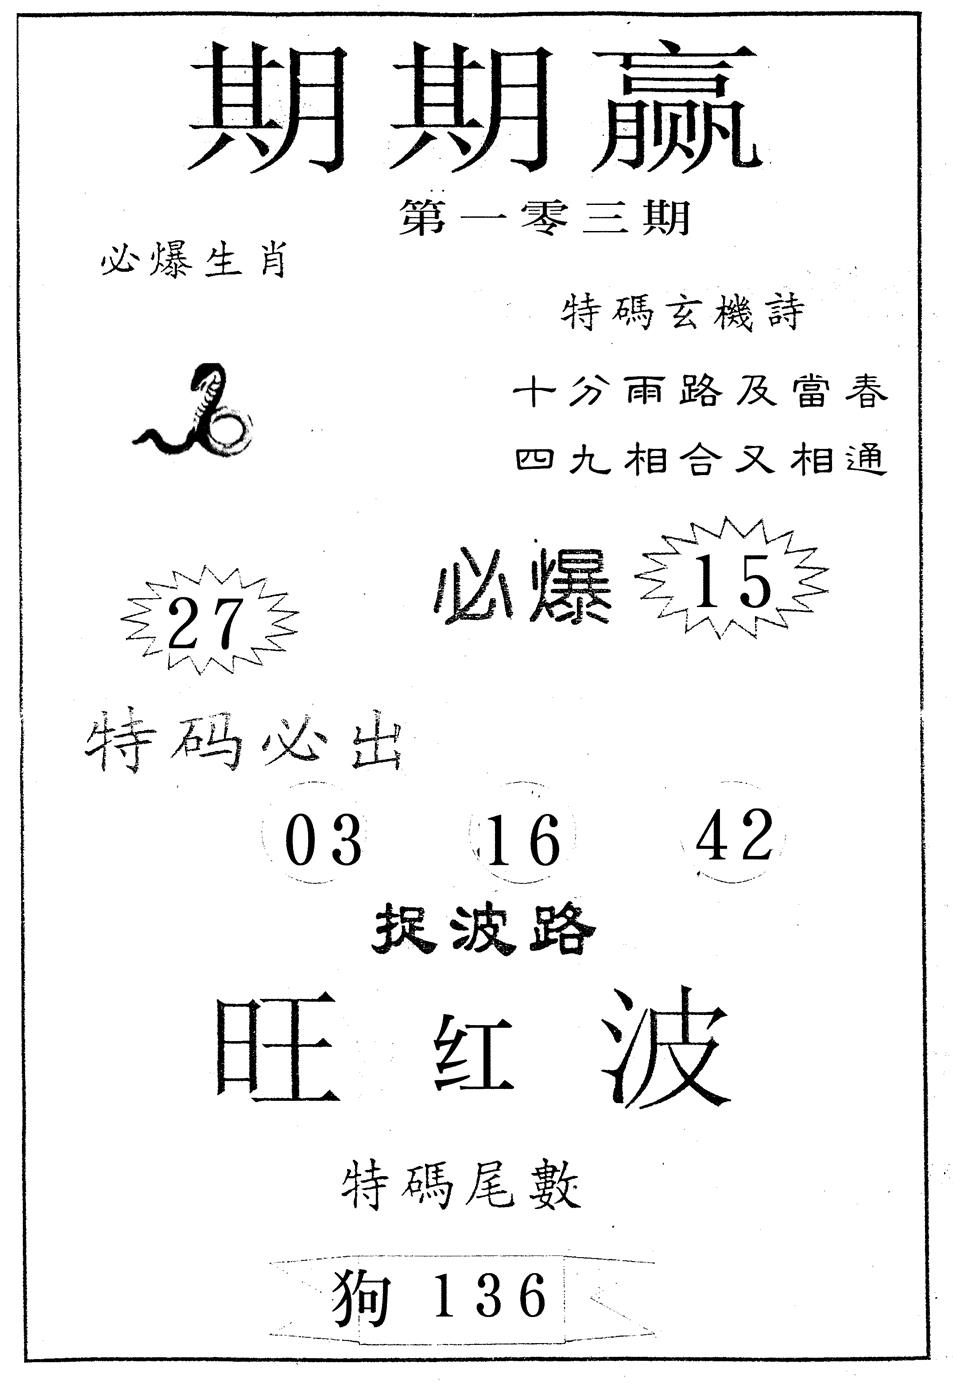 期期赢
第一零三期
必爆生肖
特碼玄機詩
十分雨路及當春
四九相合又相通
必爆 15
27
特码必出
03 16 42
捉波路
旺红波
特碼尾數
狗 136